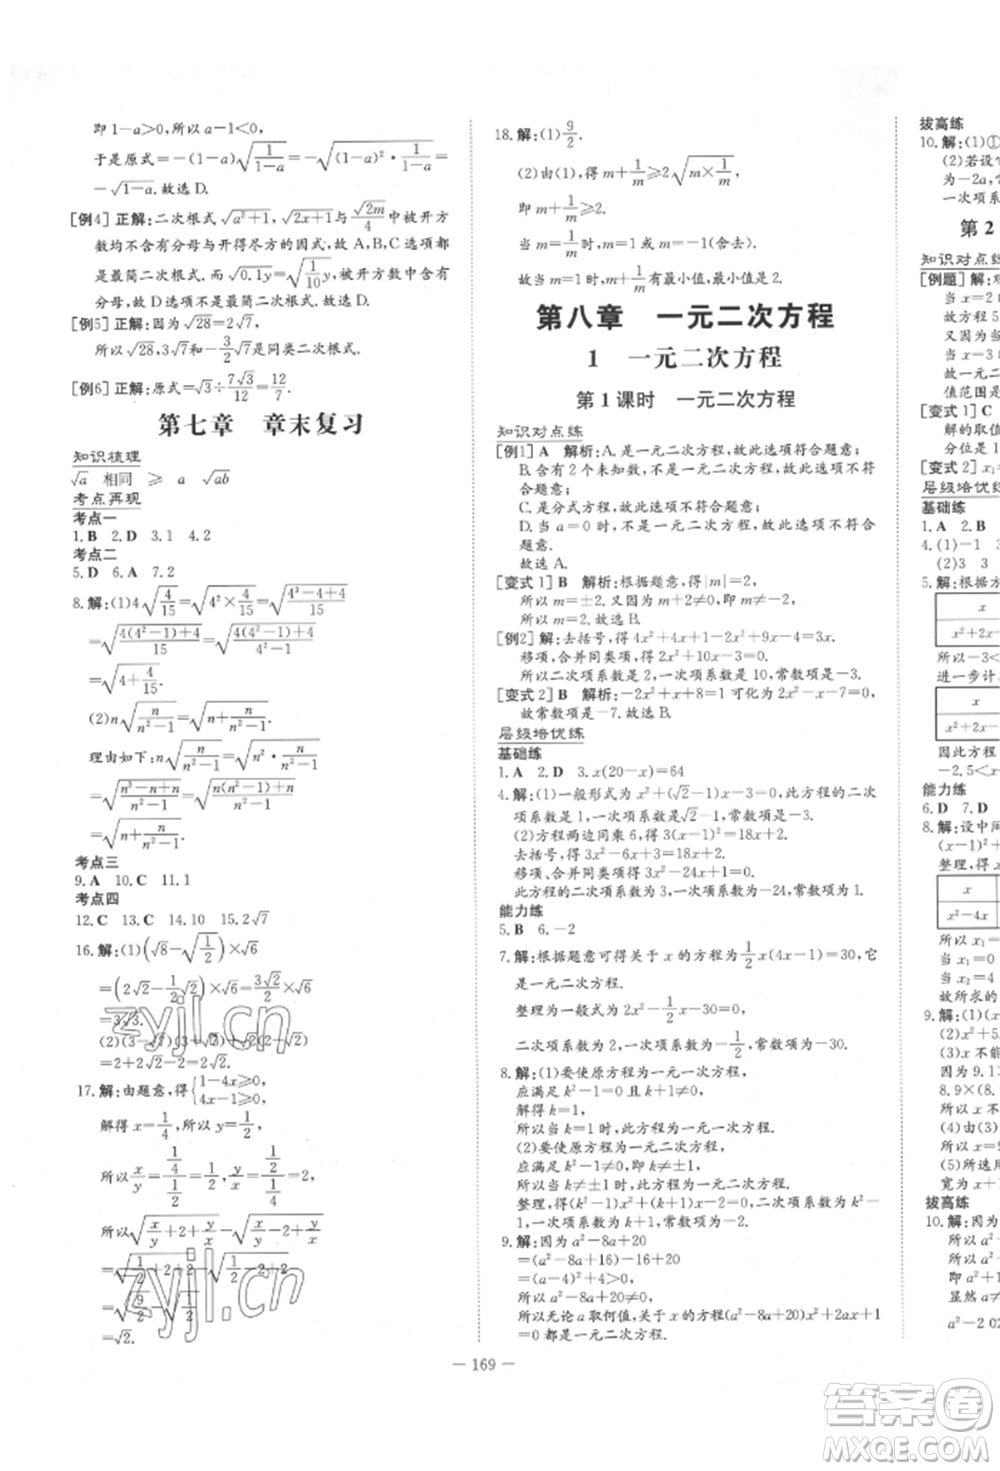 即 1-a>0,所以 a-1<0.
于是原式=-(1-a)√(1/(1-a))=-√((1-a)²·1/(1-a))=
-√(1-a).故选 D.
[例4] 正解:二次根式 √(a²+1),√(3x)与√(2m)/4中被开方
数均不含有分母与开得尽方的因式,故 A,B,C 选项
都是最简二次根式.√(0.1y)=√(1/10 y),被开方数中含有
分母,故 D 选项不是最简二次根式.故选 D.
[例5] 正解:因为 √28=2√7,
所以 √28,3√7与-3/2√7是同类二次根式.
[例6] 正解:原式=√3÷7√3/12=12/7.
第七章 章末复习
知识梳理
√a 相同 ≥ a √ab
考点再现
考点一
1.B 2.D 3.1 4.2
考点二
5.D 6.A 7.2
8.解:(1)4√(4/15)=√(4²×4/15)=√((4³-4+4)/15)
=√((4(4²-1)+4)/15)=√((4(4²-1)+4)/(4²-1))
=√(4+4/15).
(2)n√(n/(n²-1))=√(n+n/(n²-1)).
理由如下:n√(n/(n²-1))=√(n²·n/(n²-1))
=√((n³-n+n)/(n²-1))=√((n(n²-1)+n)/(n²-1))
=√(n+n/(n²-1)).
考点三
9.A 10.C 11.1
考点四
12.C 13.C 14.10 15.2√7
16.解:(1)(√8-√(1/2))×√6
=(2√2-√2/2)×√6=3√2/2×√6
=3√3.
=2+2√2+2√2=2+4√2.
17.解:由题意,得{1-4x≥0, 4x-1≥0,
解得 x=1/4,所以 y=1/2,
所以 x/y=(1/4)/(1/2)=1/2,y/x=(1/2)/(1/4)=2,
所以√(x/y+2+y/x)-√(x/y-2+y/x)
=√2.
18.解:(1)9/2.
(2)由(1),得 m+1/m≥2√(m×1/m),
即 m+1/m≥2.
当 m=1/m时,m=1,m=-1(舍去).
故当 m=1 时,m+1/m有最小值,最小值是 2.
第八章 一元二次方程
1 一元二次方程
第 1 课时 一元二次方程
知识对点练
[例1] A 解析:A.是一元二次方程,故此选项符合题意;
B.含有 2 个未知数,故此选项不符合题意,故此选项不
合题意;
C.是分式方程,故此选项不符合题意;
D.当 a=0 时,不是一元二次方程,故此选项不符合
题意.
故选 A.
[变式 1] B 解析:根据题意,得|m|=2,
所以 m=±2.又因为 m+2≠0,即 m≠-2,
所以 m=2.故选 B.
[例2] 解:去括号,得 4x²+4x-2x²-2x+9=8x.
移项,合并同类项,得 2x²+10x-3=0.
所以二次项系数是 2,一次项系数是 10,常数项是-3.
[变式 2] B 解析:-2x²+x+8=1 可化为-2x²+x+7=0,
故常数项是-7.故选 B.
层级培优练
基础练
1.A 2.D 3.x(20-x)=64
4.解:(1)一般形式为 x²+(√2-1)x-3=0,它的二次
项系数是 1,一次项系数是√2-1,常数项是-3.
(2)方程两边同乘 6,得 3(x²+1)-24x=2,
去括号,得 3x²+3-24x=2.
移项、合并同类项,得 3x²-24x+1=0,
此方程的二次项系数为 3,一次项系数为-24,常数项为 1.
能力练
5.B 6.-2
7.解:根据题意可得关于 x 的方程为1/2x(4x-1)=30,它
是一元二次方程.
整理为一般式为 2x²-1/2x-30=0,
二次项系数为 2,一次项系数为-1/2,常数项为-30.
8.解:(1)要使原方程为一元一次方程,
应满足 k²-1=0,且 k+1≠0,
解得 k=1.
所以当 k=1 时,此方程为一元一次方程.
(2)要使原方程为一元二次方程,
应满足 k²-1≠0,所以 k≠±1,
所以当 k≠±1 时,此方程为一元二次方程.
整理,得(k²-1)x²+(k+1)x-2=0,二次项系数是
k²-1,一次项系数为 k+1,常数项为-2.
9.解:因为 a²-8a+20
=(a²-8a+16)-16+20
=(a-4)²+4≥4,
所以无论 a 取何值,关于 x 的方程(a²-8a+20)x²+2ax+1
=0 都是一元二次方程.
— 169 —
拔高练
10.解:(1)①
(2)若设
为-2a,
一次项系
第 2
知识对点练
[例题] 解:
当 x=2
故方程
又因为
当 x=
故一元
值范围是
[变式 1] C
解的取值
分位是 1
[变式 2] x₁
层级培优练
基础练
1.A 2.B
4.(1)-1
(2)3 3
5.解:根据方
x
x²+2x-
所以-3<
进一步计
x
x²+2x-
因此方程
-2.5<x
能力练
6.D 7.D
8.解:设中间
(x-1)²+
整理,得
x
x²-4x
所以 x
当 x₁=0
当 x₂=4
故所求的
9.解:(1)(x
(2)x²+5
(3)x 不能
因为 9.1
8.9×(3
(4)由(3)
所以 x
(5)所选用
宽为 x+1
拔高练
10.解:因为
所以
即
显然 a≠
a²-2 02
zyjl.cn
zyjl.cn
答案圈
MXQE.COM